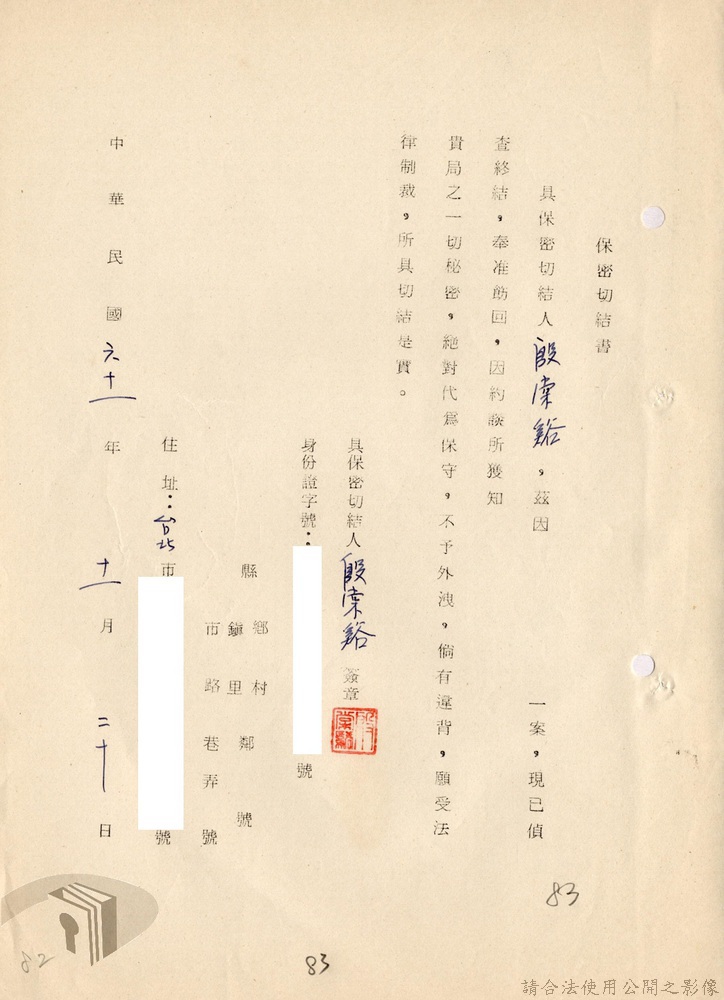 保密切結書
具保密切結人殷棠谿，茲因　　　一案，現已偵
查終結，奉准飭回，因約談所獲知
貴局之一切秘密，絕對代為保守，不予外洩，倘有違背，願受法
律制裁，所具切結是實。
具保密切結人殷棠谿　簽章
身份證字號：　號
縣　鄉鎮　村里　鄰　號
市　路　巷　弄　號
住址：台北市　號
中華民國六十一年十一月二十日
83
83
82
請合法使用公開之影像